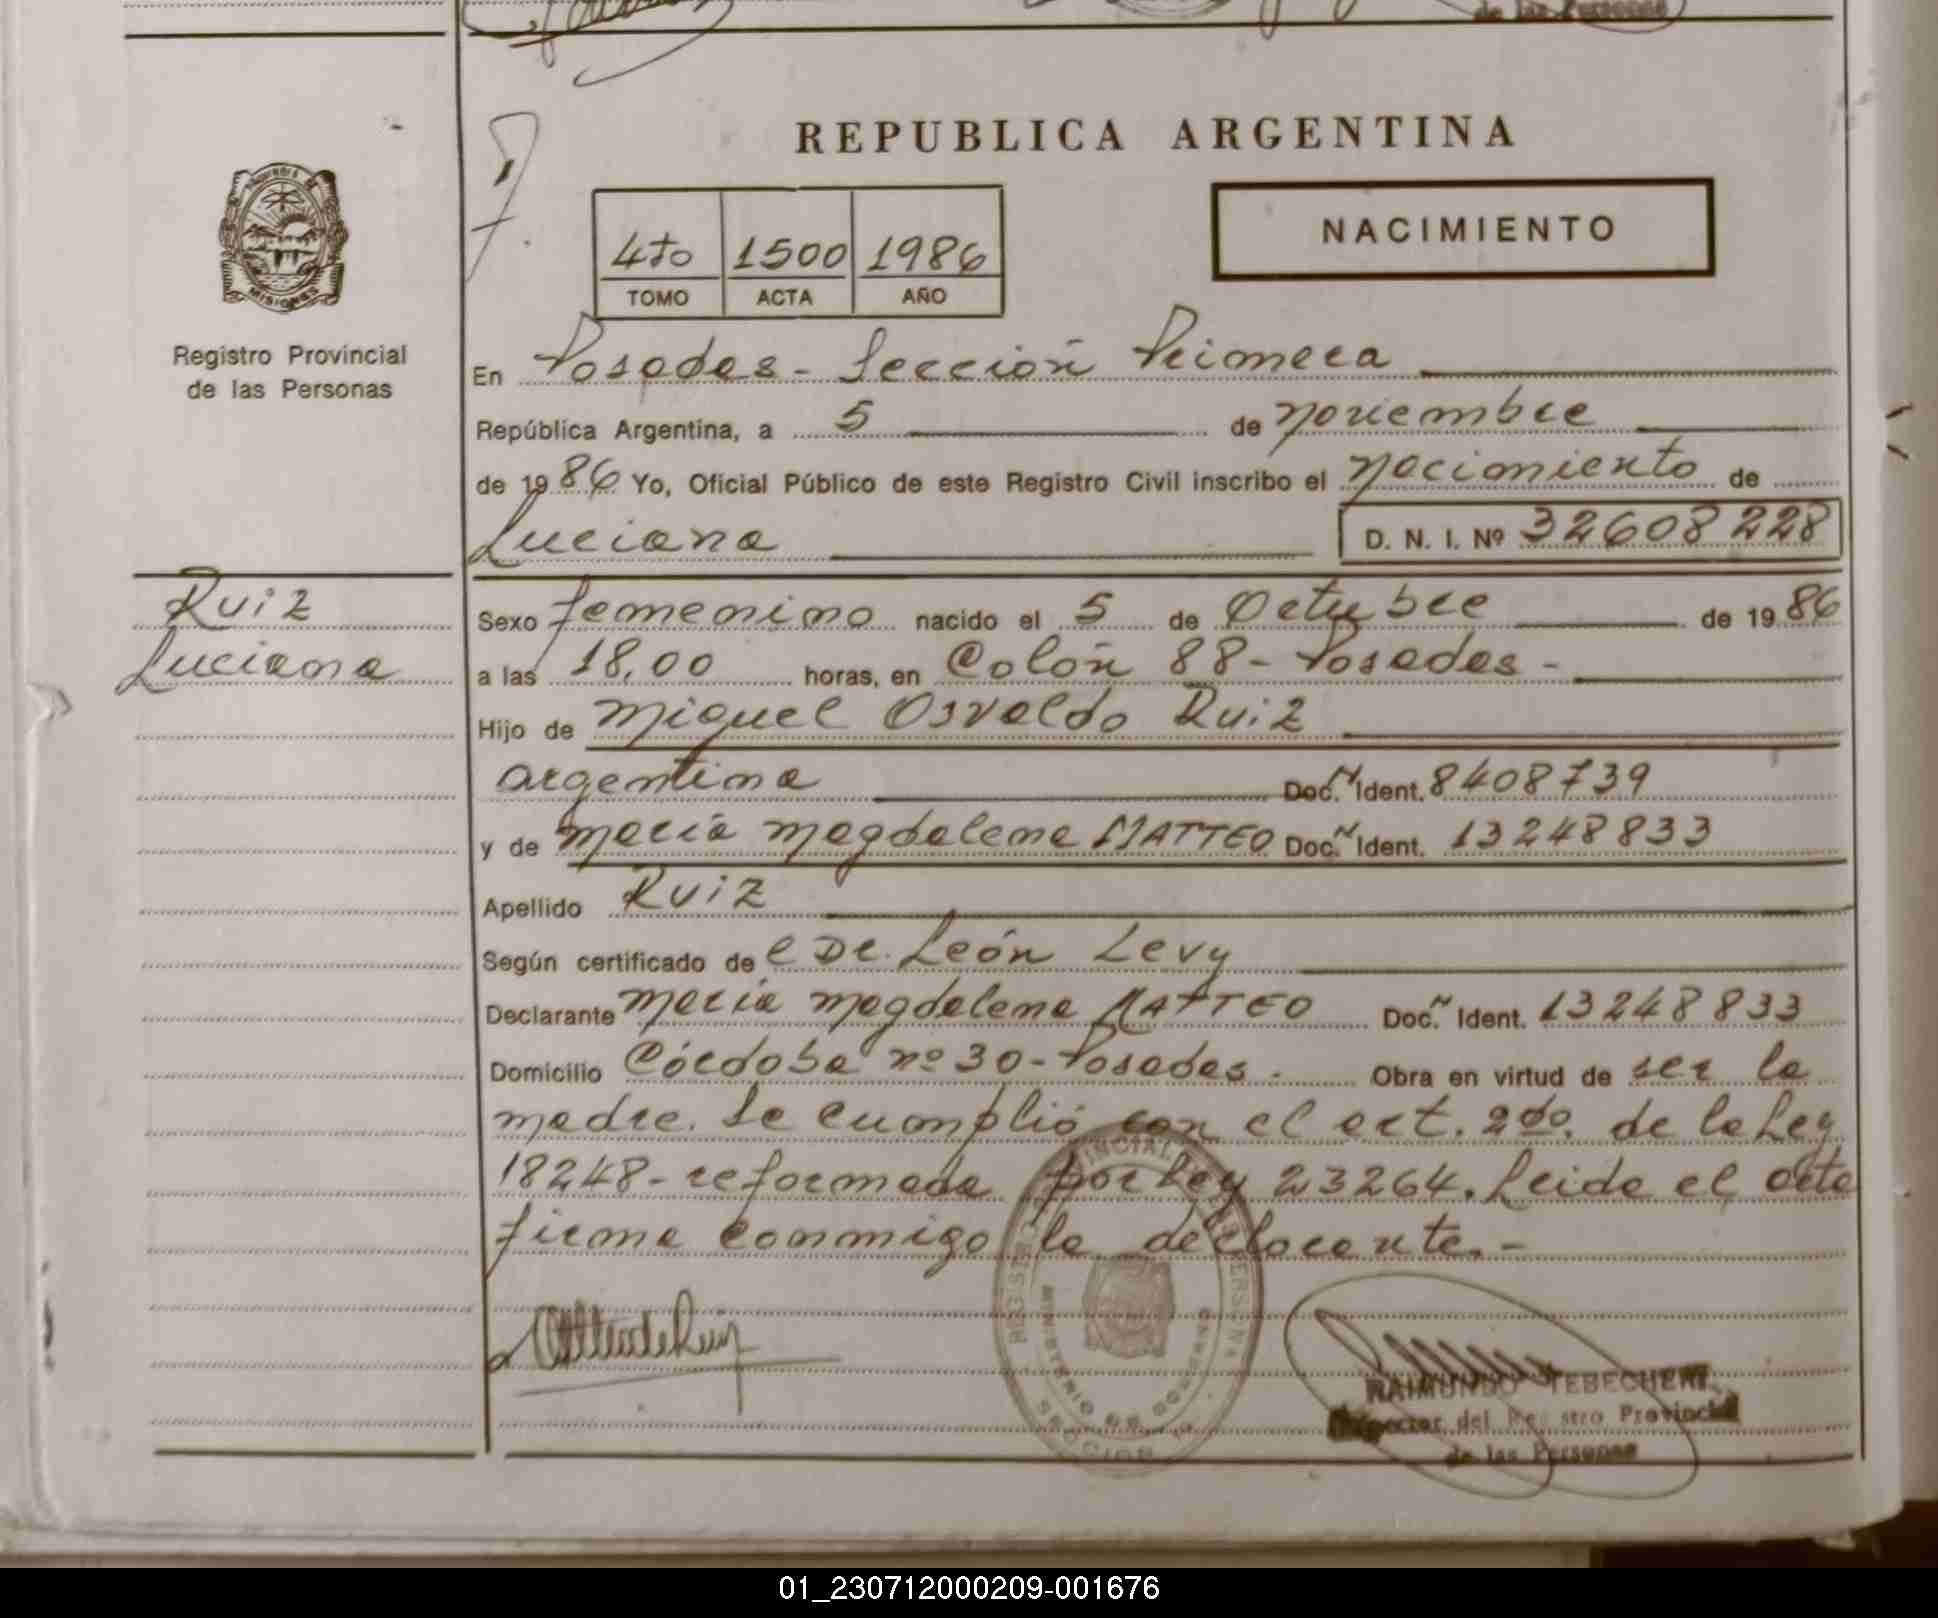 de las Personas
REPUBLICA ARGENTINA
NACIMIENTO
4to 1500 1986
TOMO ACTA AÑO
MISIONES
Registro Provincial
de las Personas
En Posadas - Sección Primera
República Argentina, a 5 de noviembre
de 1986 Yo, Oficial Público de este Registro Civil inscribo el nacimiento de
Luciana D. N. I. Nº 32608228
Ruiz
Luciana
Sexo femenino nacido el 5 de Octubre de 1986
a las 18,00 horas, en Colón 88 - Posadas -
Hijo de Miguel Osvaldo Ruiz
argentina Doc. N Ident. 8408739
y de María Magdalena MATTEO Doc. N Ident. 13248833
Apellido Ruiz
Según certificado de l Dr. León Levy
Declarante María Magdalena MATTEO Doc. N Ident. 13248833
Domicilio Córdoba nº 30 - Posadas. Obra en virtud de ser la
madre. Se cumplió con el art. 2do. de la Ley
18248 - reformada por Ley 23264. Leida el acta
firma conmigo la declarante. -
MINISTERIO DE GOBIERNO
SECCION 1a
RAIMUNDO TEBECHERI
Director del Registro Provincial
de las Personas
01_230712000209-001676